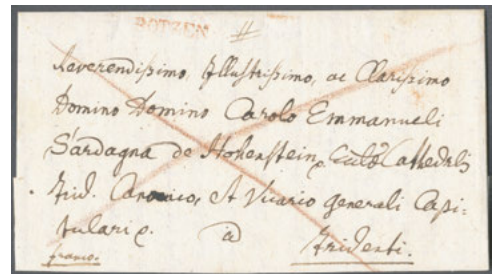 BOTZEN
Reverendissimo, Illustrissimo, ac Clarissimo
Domino Domino Carolo Emmanueli
Sardagna de Hohenstein, Cathedralis
Trid. Canonico, et Vicario generali Capi-
tulari
a Tridenti.
franco.